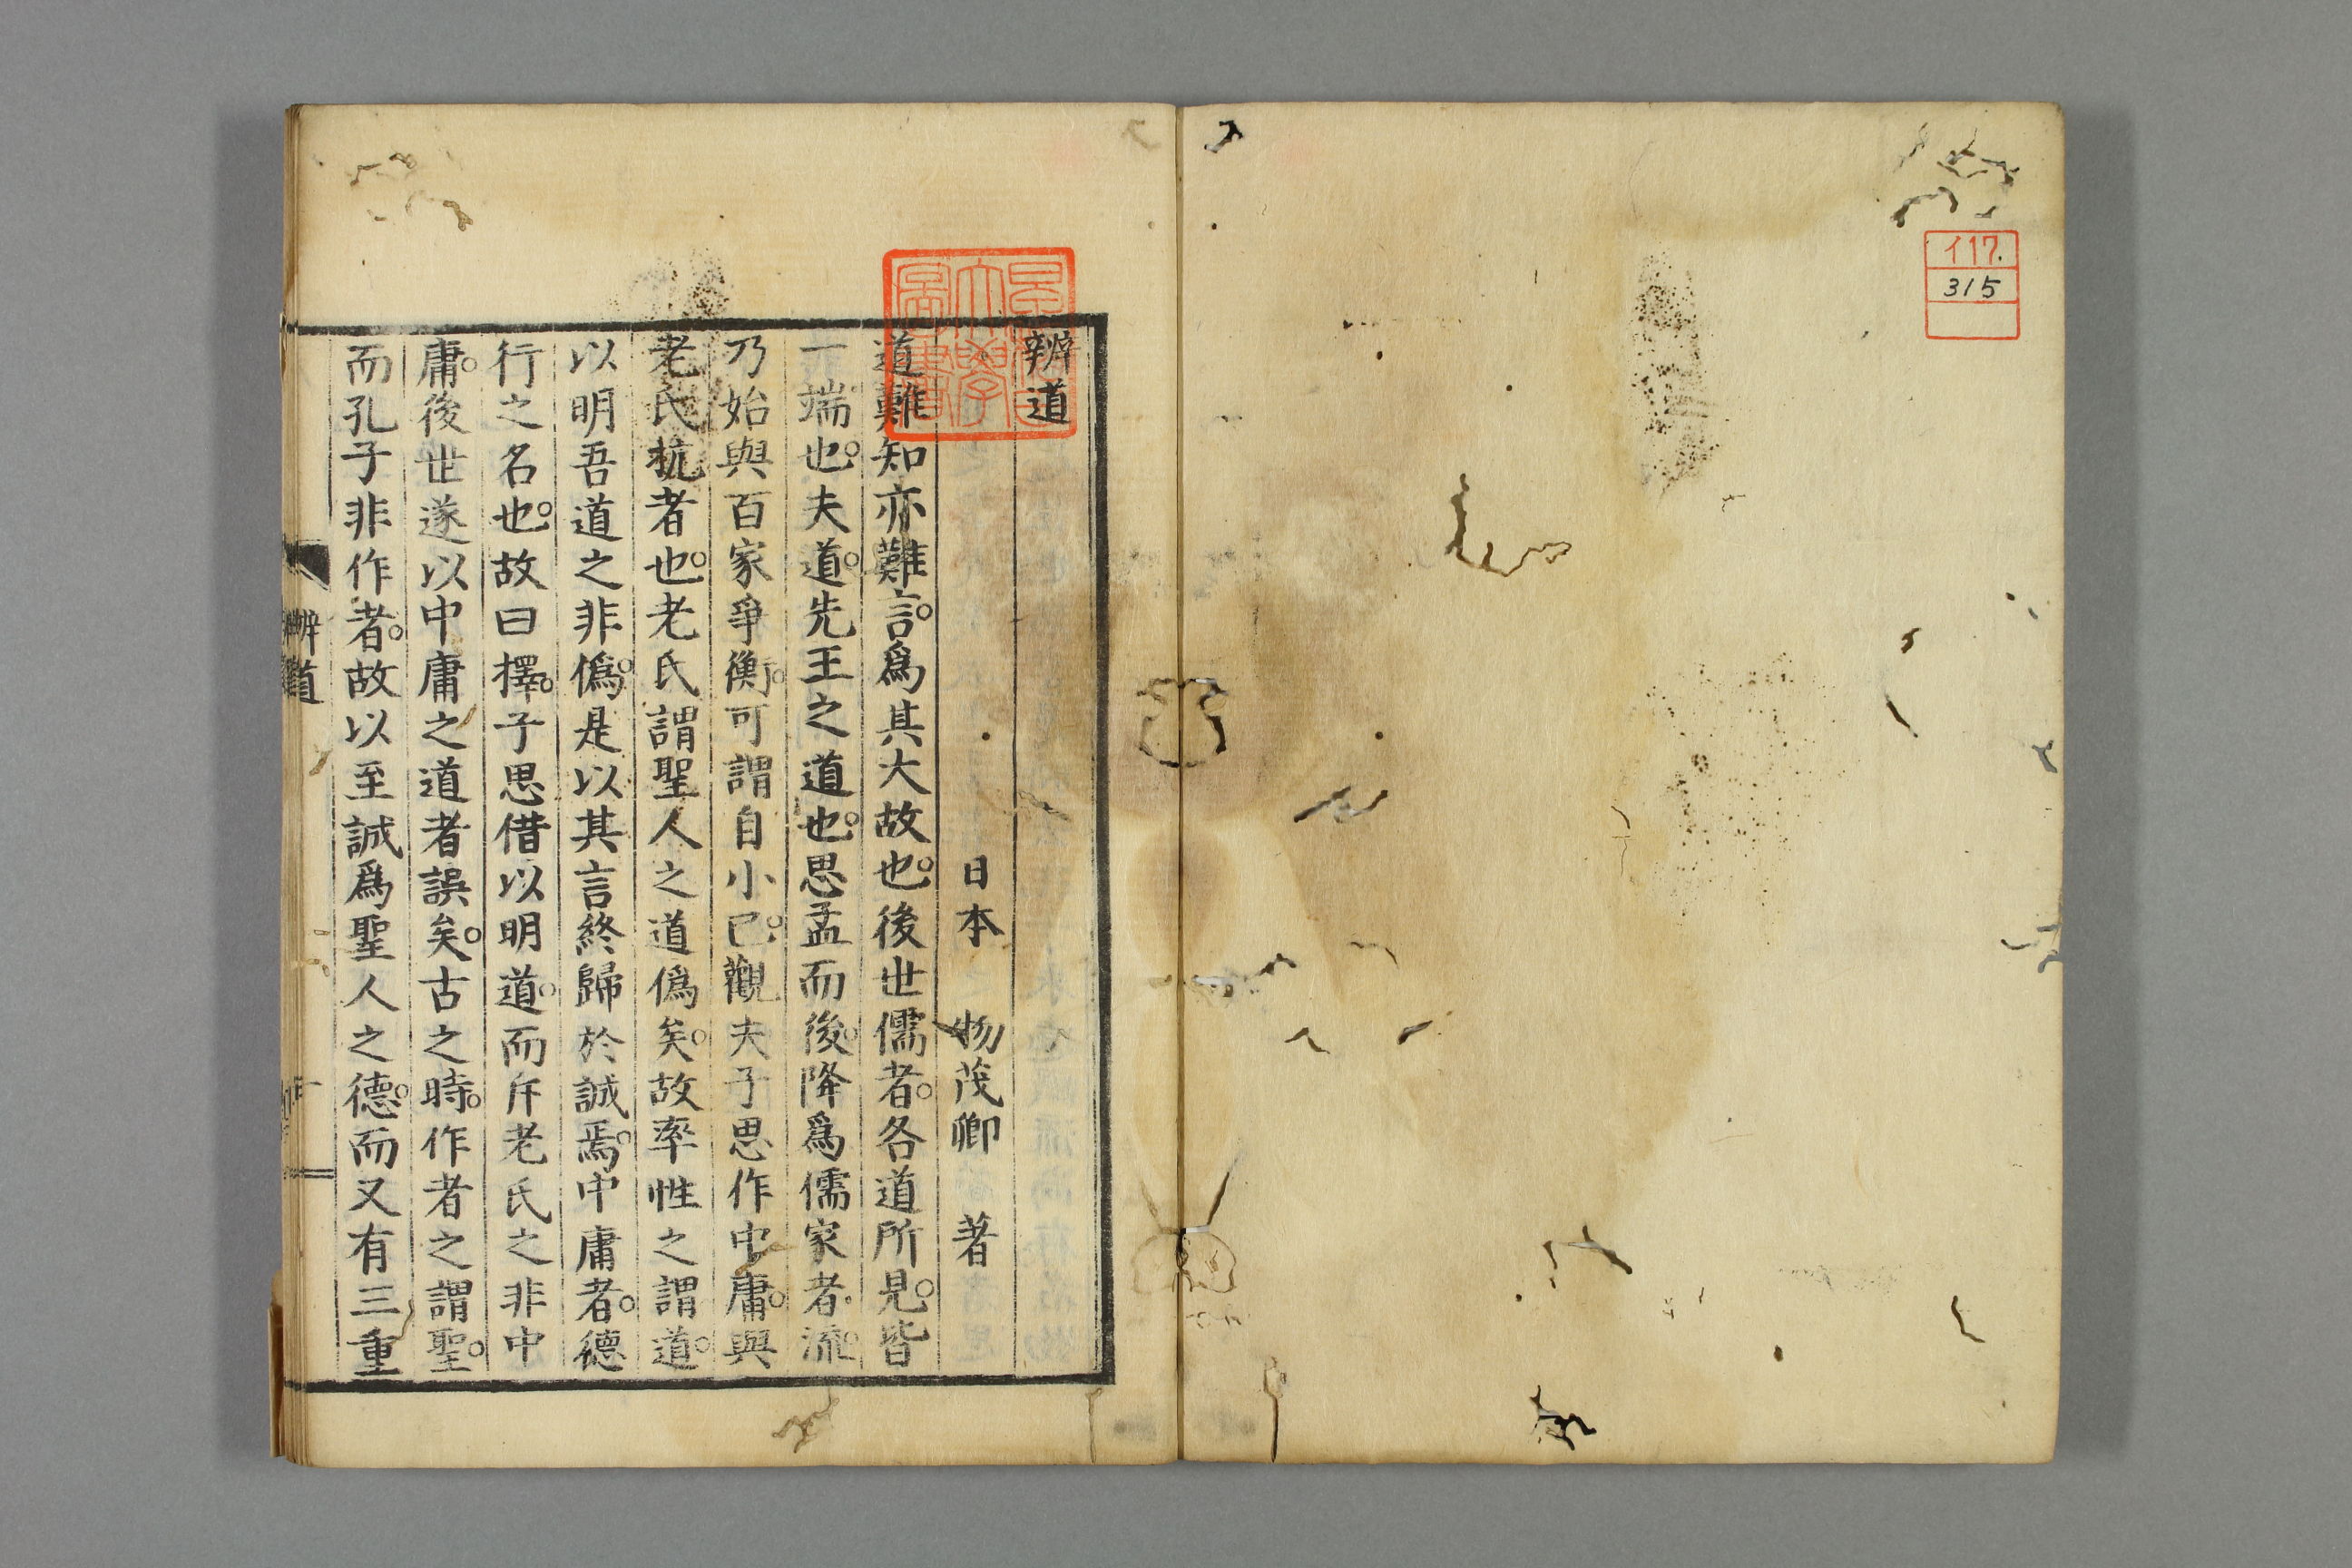 イ17.
315
辨道
日本 物茂卿 著
道難知亦難言。爲其大故也。後世儒者。各道所見。皆
一端也。夫道。先王之道也。思孟而後。降爲儒家者流。
乃始與百家爭衡。可謂自小已。觀夫子思作中庸。與
老氏抗者也。老氏謂聖人之道僞矣。故率性之謂道。
以明吾道之非僞。是以其言終歸於誠焉。中庸者。德
行之名也。故曰擇。子思借以明道。而斥老氏之非中
庸。後世遂以中庸之道者誤矣。古之時。作者之謂聖。
而孔子非作者。故以至誠爲聖人之德。而又有三重
辨道